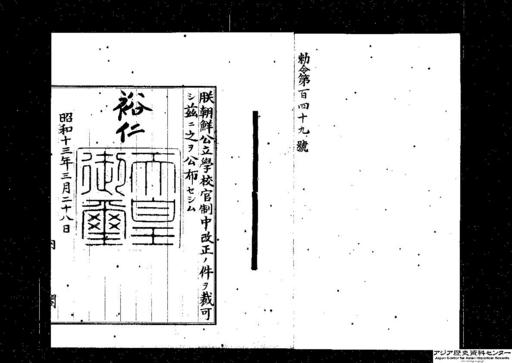 勅令第百四十九號
朕朝鮮公立學校官制中改正ノ件ヲ裁可
シ茲ニ之ヲ公布セシム
裕仁
天皇御璽
昭和十三年三月二十八日
内閣
アジア歴史資料センター
Japan Center for Asian Historical Records